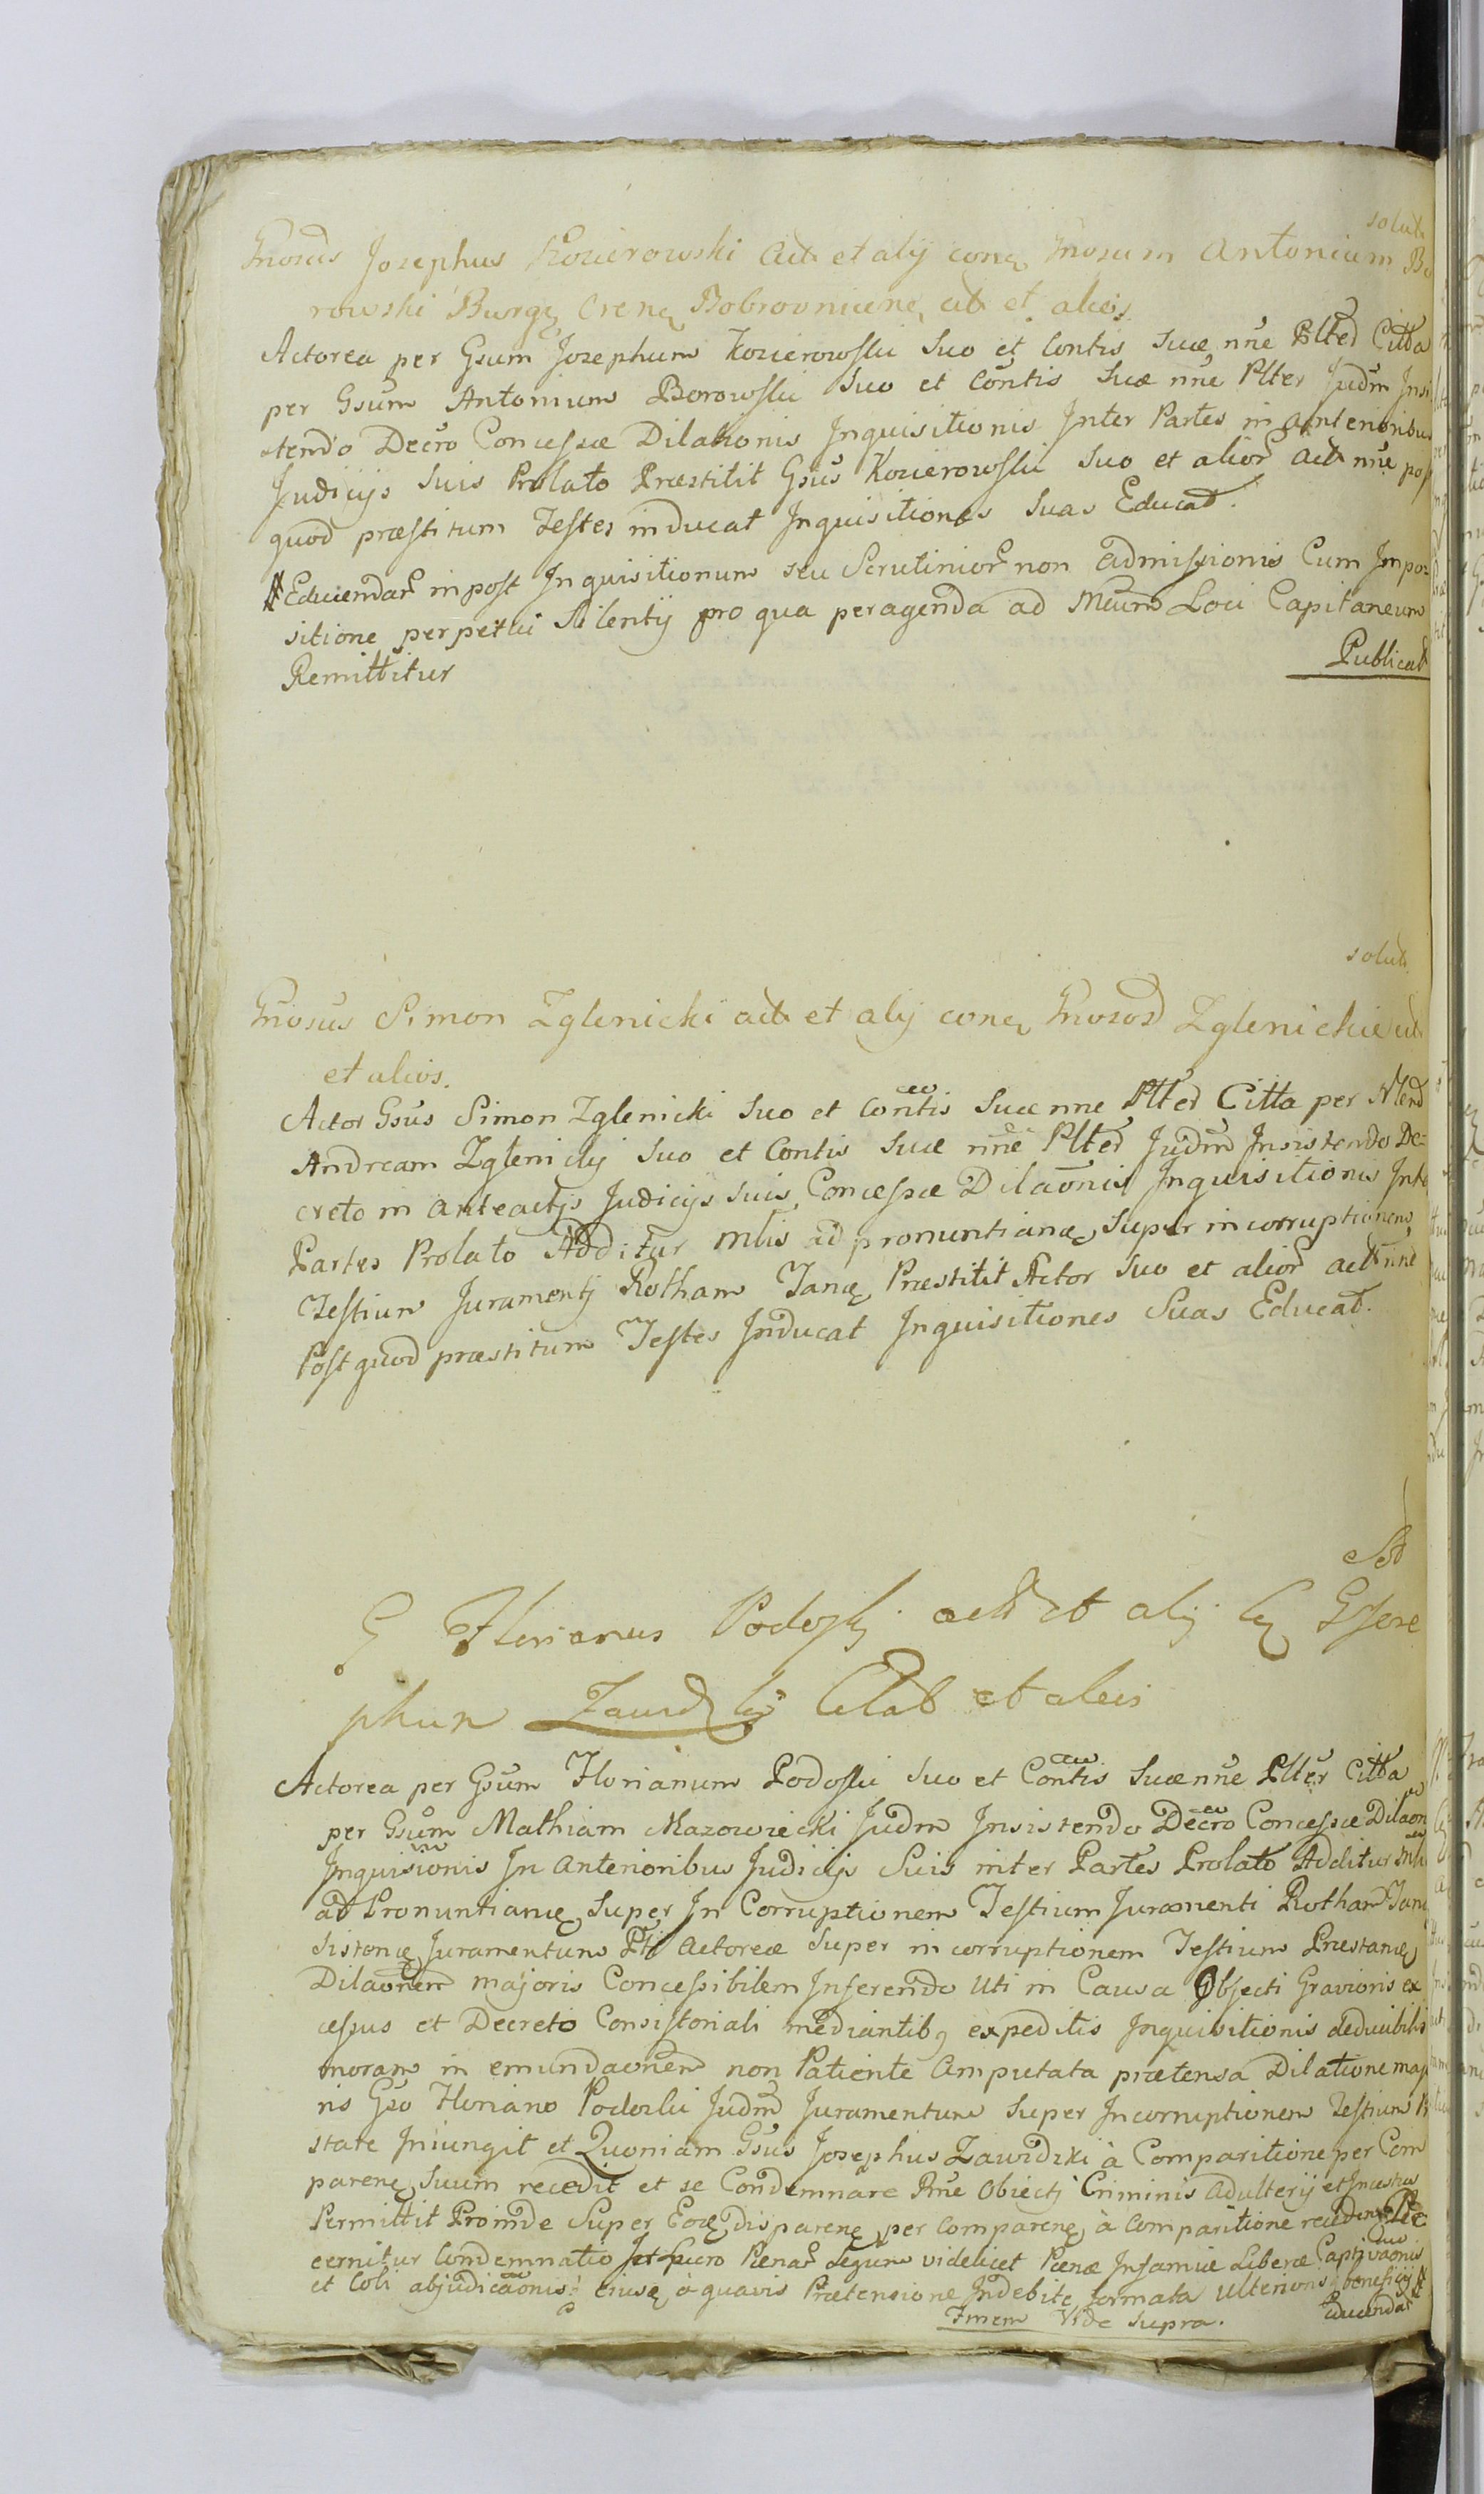 solut
Gnosus Josephus Kozierowski act et alij conq Gnosum Antonium Bo
rowski Burgq Crenq Bobrovnicenq, cit et alios
Actorea per Gsum Josephum Kozierowski Suo et Contis Suae nne Plted Citta
per Gsum Antonium Borowski Suo et Contis Suae nne Plter Judm Insi
stendo Decro Concessae Dilationis Inquisitionis Inter Partes in anterioribus
Judicijs Suis Prolato Praestitit Gsus Kozierowski Suo et alior act nne post
quod praestitum Testes inducat Inquisitiones Suas Educat.
# Educendar in post Inquisitionum seu Scrutinior non admissionis Cum Impo=
sitione perpetui Silentij pro qua peragenda ad Mcum Loci Capitaneum
Remittitur
Publicat
solut
Gnosus Simon Zglenicki act et alij conq Gnosos Zglenickie cit
et alios.
Actor Gsus Simon Zglenicki Suo et Contis Suae nne Plted Citta per
Andream Zglenicky Suo et Contis Suae nne Plted Judm Insistendo De=
creto in anteactis Judicijs suis, Concessae Dilaonis Inquisitionis Inter
Partes Prolato Additur Mlis ad pronuntianq, Super incorruptionem
Testium Juramenti Rotham Tanq Praestitit Actor Suo et alior act nne
Post quod praestitum Testes Inducat Inquisitiones Suas Educat.
Sol
G Florianus Podoski act et alij Cq G Jose
phum Zawidzki Citat et alios
Actorea per Gsum Florianum Podoski Suo et Contis Suae nne Plter Citta
per Gsum Mathiam Mazowiecki Judm Insistendo Decro Concessae Dilaonis
Inquisionis In anterioribus Judicijs Suis inter Partes Prolato Additur Mlis
ad Pronuntianq Super In Corruptionem Testium Juramenti Rotham Tanq
Sistenq Juramentum Pti Actoreae Super incorruptionem Testium Praestanq
Dilaonem majoris Concessibilem Inferendo Uti in Causa Objecti Gravioris ex
cessus et Decreto Consistoriali mediantibq expeditis Inquisitionis deducibilis
moram in emundaonem non Patiente amputata praetensa Dilatione majo
ris Gso Floriano Podoski Judm Juramentum Super Incorruptionem Testium Prae
state Iniungit et Quoniam Gsus Josephus Zawidzki à Comparitione per Com
parenq Suum recedit et se Condemnare Rne Objecti Criminis Adulterij et Incestus
Permittit Proinde Super Eoq disparenq per Comparenq à comparitione recedenq De
cernitur Condemnatio Lucro Paenar Legum videlicet Paenae Infamiae Liberae Captivaonis
et Coli abjudicaonis ejusq à quavis Praetensione Indebite formata Ulterioris beneficij #
Finem Vide Supra. Educendar